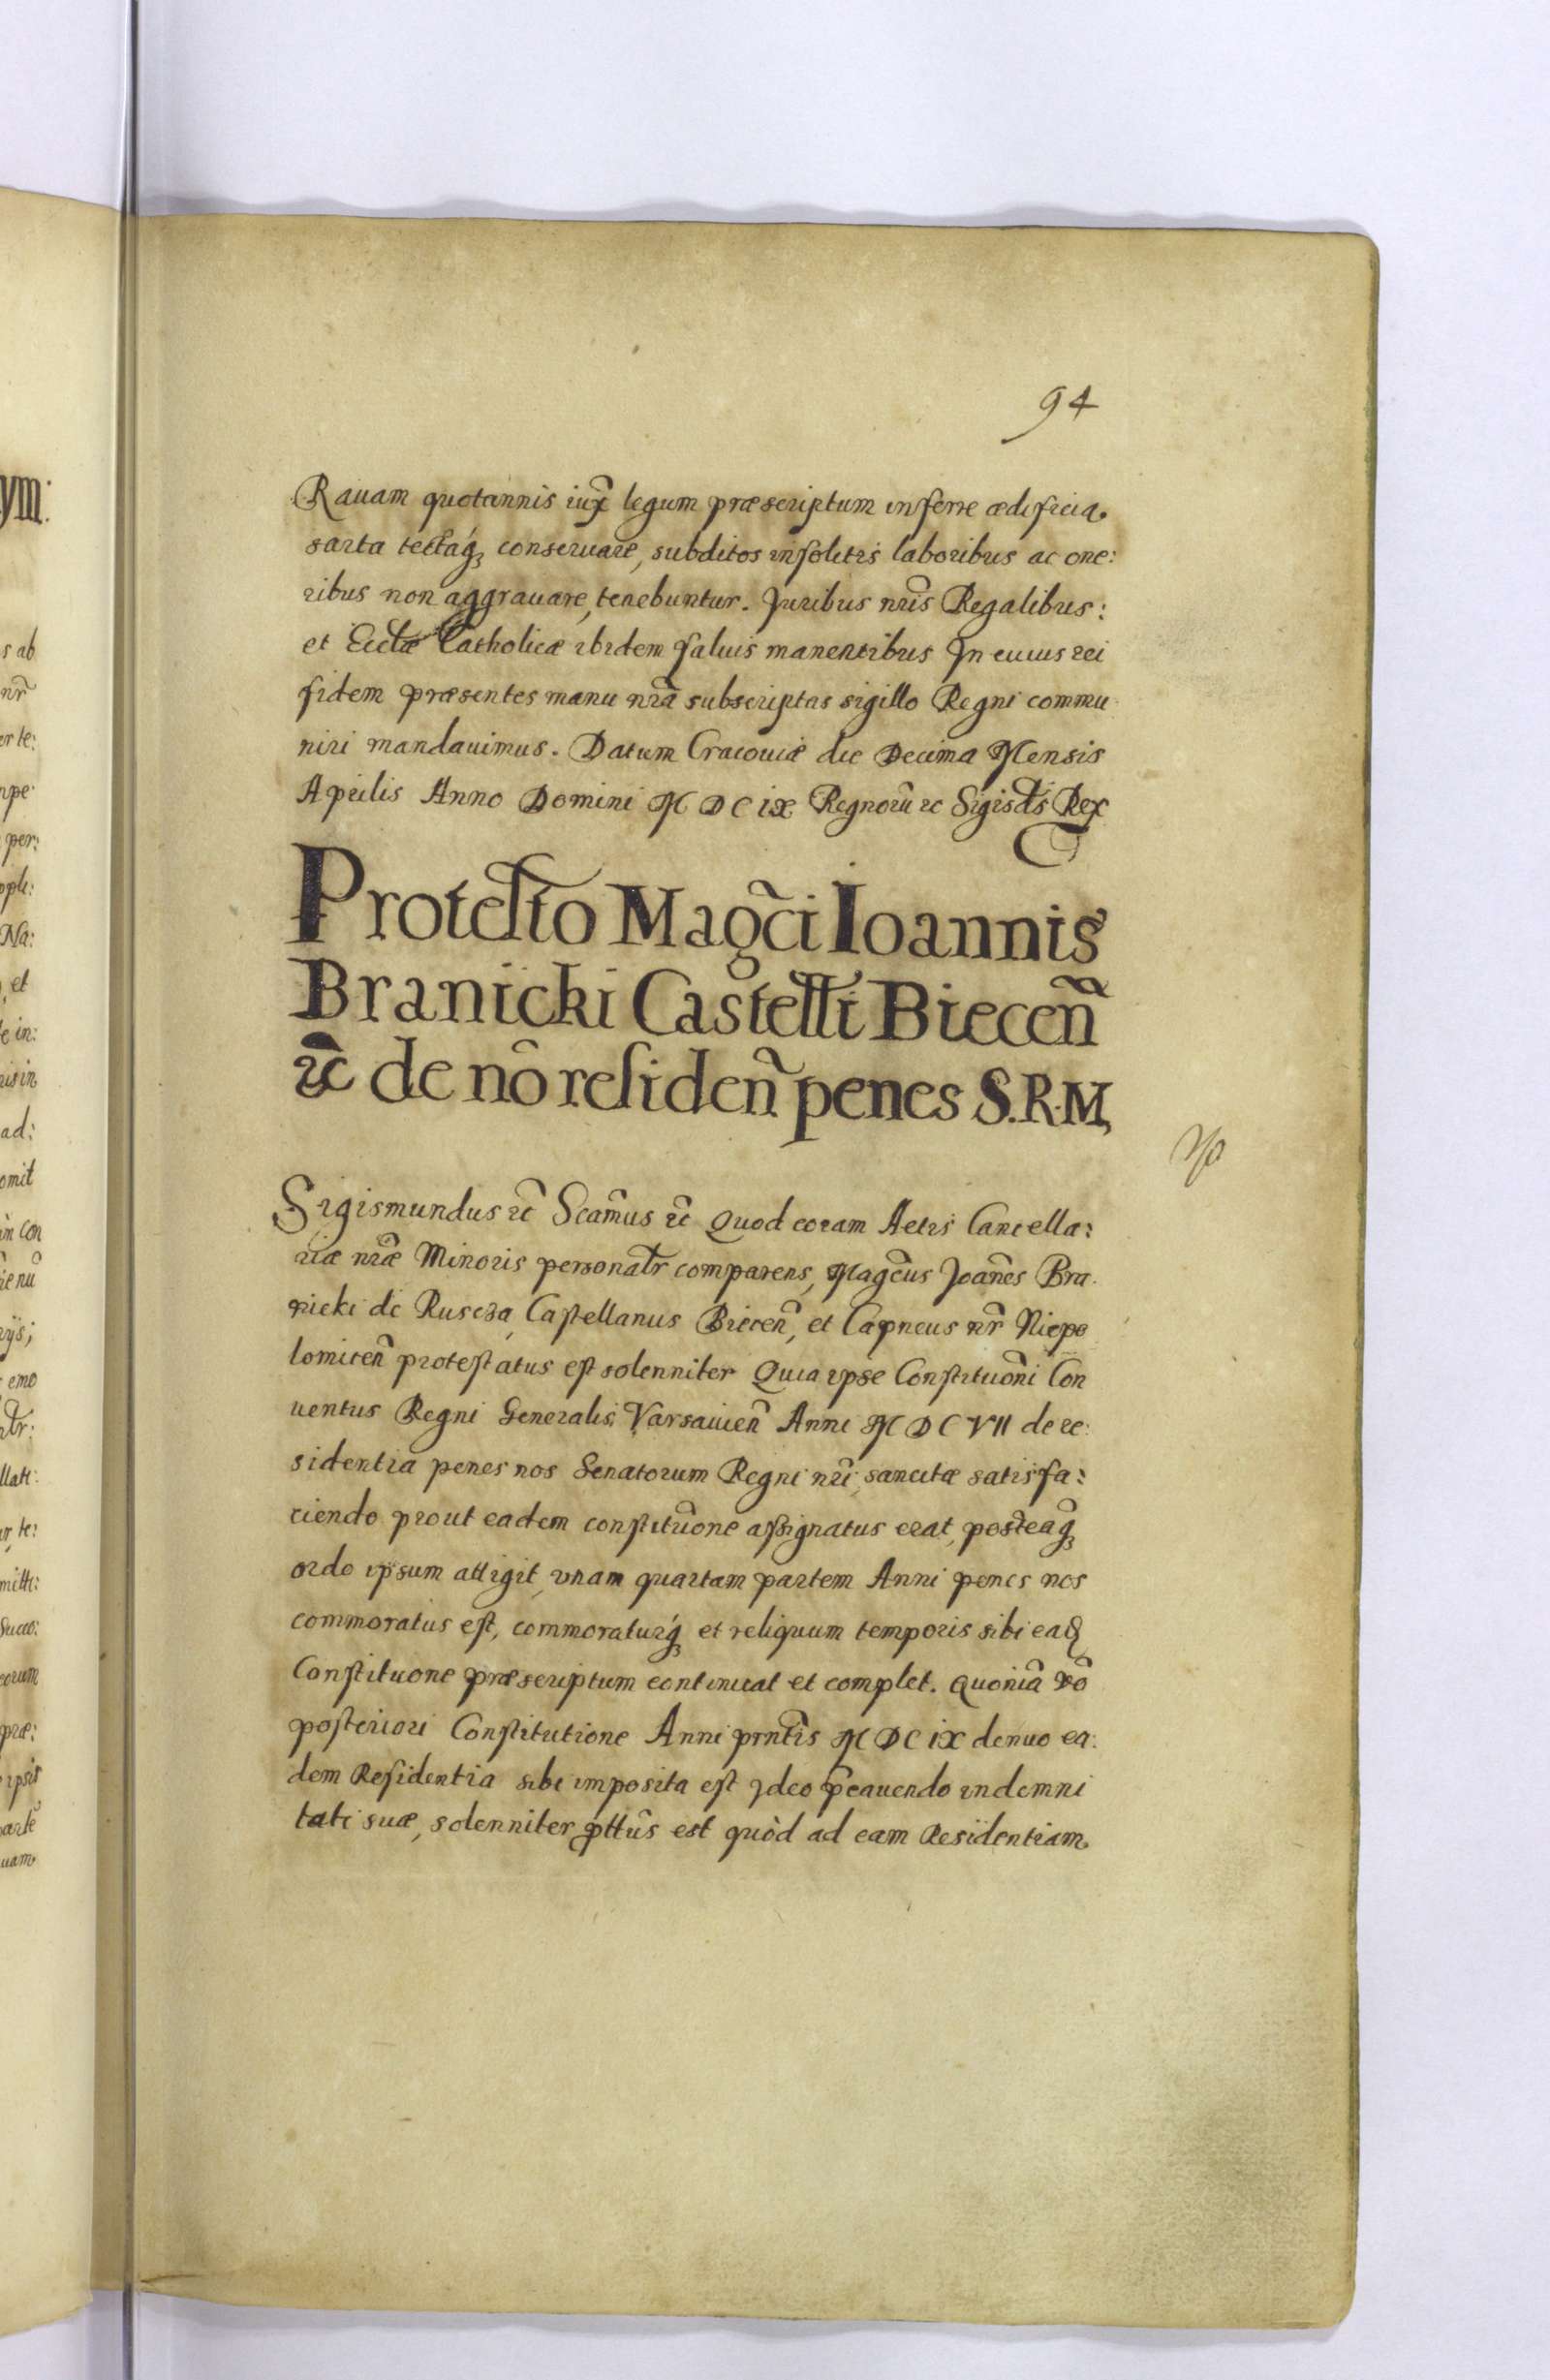 94
Rauam quotannis iux̃ legum præscriptum inferre ædificia
sarta tectaq́ꝫ conseruare, subditos insolitis laboribus ac one:
ribus non aggrauare, tenebuntur. Juribus nr̃is Regalibus:
et Eccłæ Catholicæ ibidem saluis manentibus In cuius rei
fidem præsentes manu nr̃a subscriptas sigillo Regni commu
niri mandauimus. Datum Cracouiæ die Decima Mensis
Aprilis Anno Domini M DC ix Regnorũ ꝛc Sigisd̃s Rex
Protesťo Mag̃ci Ioannis
Branicki Castełłi Biecen̄
ꝛc̃ de nõ residen̄ penes S.R.M,
Sigismundus ꝛc̃ Scãmus ꝛc̃ Quod coram Actis Cancella:
riæ nr̃æ Minoris personałr comparens, Mag̃cus Joañes Bra
nicki de Ruscza Castellanus Biecen̄, et Capneus nr̃ Niepo
lomicen̄ protestatus est solenniter Quia ipse Constituõni Con
uentus Regni Generalis Varsauien̄ Anni M DC VII de re:
sidentia penes nos Senatorum Regni nr̃i sancitæ satisfa:
ciendo prout eadem constitũone assignatus erat, posteaq̃ꝫ
ordo ipsum attigit, vnam quartam partem Anni penes nos
commoratus est, commoraturq́ꝫ et reliquum temporis sibi eaꝺ
Constituone præscriptum continuat et complet. Quoniã v̄o
posteriori Constitutione Anni prñtis M DC ix denuo ea:
dem Residentia sibi imposita est Jdeo p̃cauendo indemni
tati suæ, solenniter ꝓttũs est quòd ad eam Residentiam